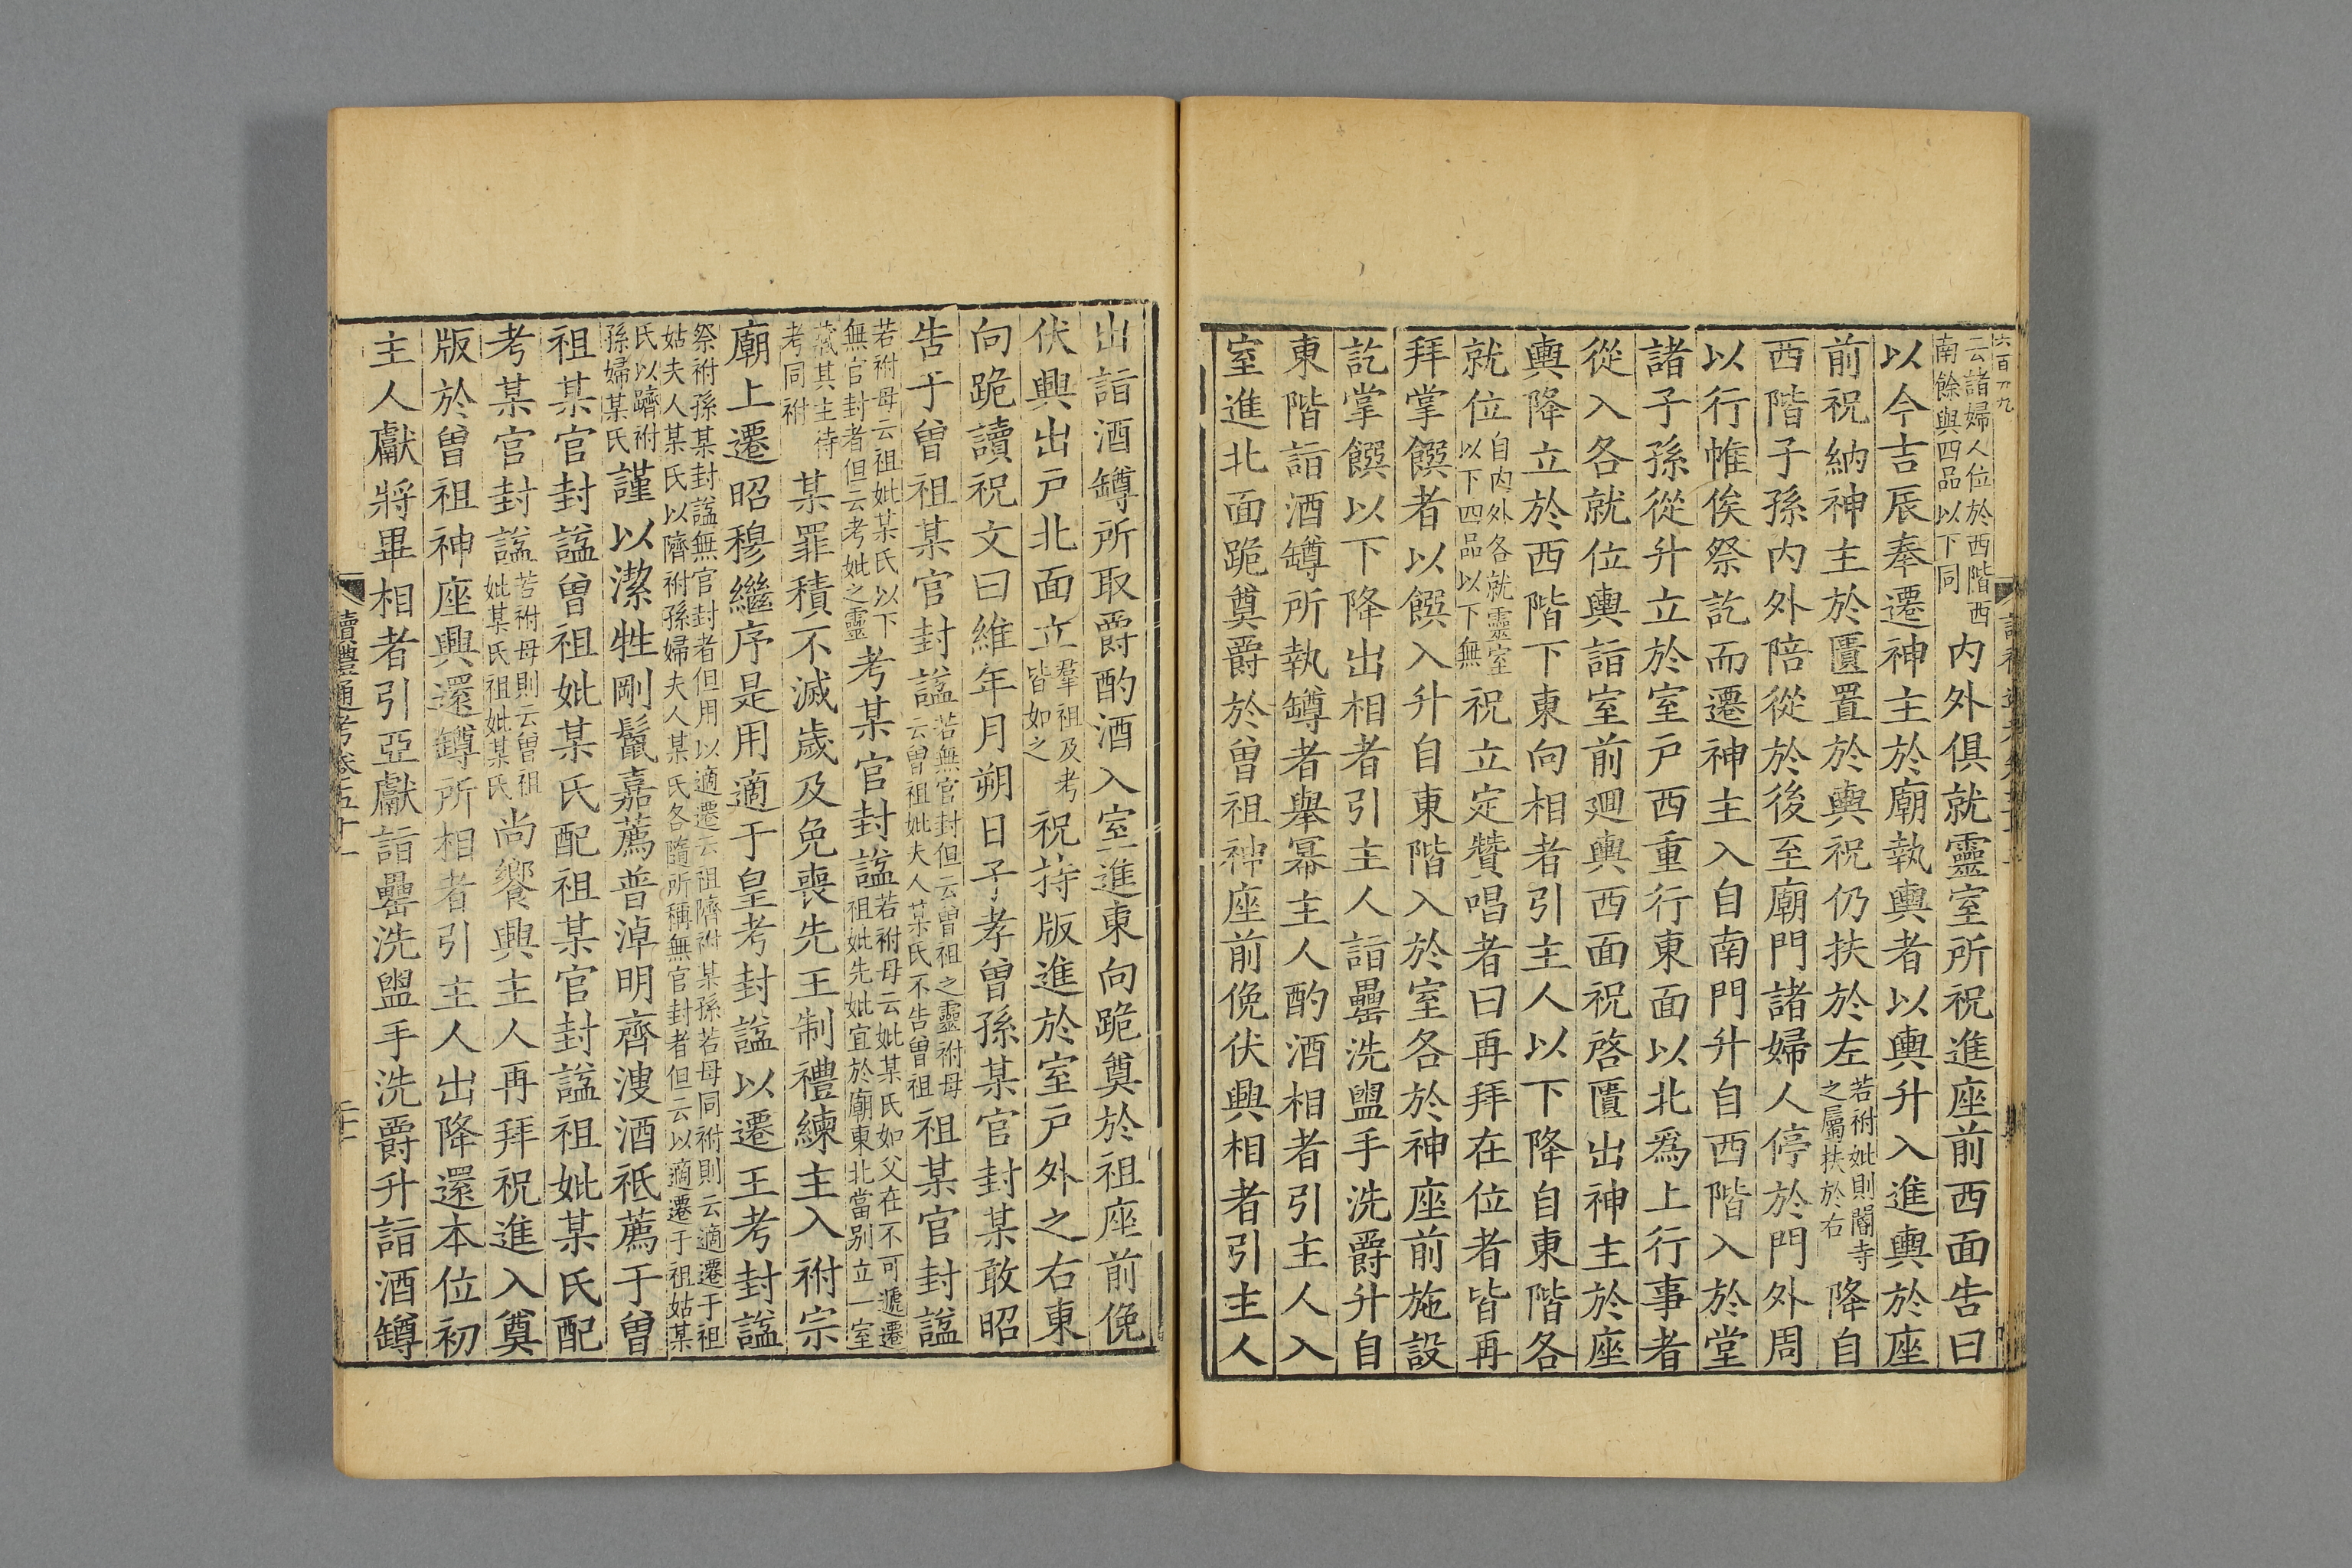 云諸婦人位於西階西南餘與四品以下同内外俱就靈室所祝進座前西面告曰
以今吉辰奉遷神主於廟執輿者以輿升入進輿於座
前祝納神主於匱置於輿祝仍扶於左若祔妣則閽寺之屬扶於右降自
西階子孫内外陪從於後至廟門諸婦人停於門外周
以行帷俟祭訖而遷神主入自南門升自西階入於堂
諸子孫從升立於室戸西重行東面以北爲上行事者
從入各就位輿詣室前迴輿西面祝啓匱出神主於座
輿降立於西階下東向相者引主人以下降自東階各
就位自内外各就靈室以下四品以下無祝立定贊唱者曰再拜在位者皆再
拜掌饌者以饌入升自東階入於室各於神座前施設
訖掌饌以下降出相者引主人詣罍洗盥手洗爵升自
東階詣酒罇所執罇者舉冪主人酌酒相者引主人入
室進北面跪奠爵於曾祖神座前俛伏興相者引主人
出詣酒罇所取爵酌酒入室進東向跪奠於祖座前俛
伏興出戸北面立羣祖及考皆如之祝持版進於室戸外之右東
向跪讀祝文曰維年月朔日子孝曾孫某官封某敢昭
告于曾祖某官封諡若無官封但云曾祖之靈祔母云曾祖妣夫人某氏不告曾祖祖某官封諡
若祔母云祖妣某氏以下無官封者但云考妣之靈考某官封諡若祔母云妣某氏如父在不可遞遷祖妣先妣宜於廟東北當别立一室
藏其主待考同祔某罪積不滅歲及免喪先王制禮練主入祔宗
廟上遷昭穆繼序是用適于皇考封諡以遷王考封諡
祭祔孫某封諡無官封者但用以適遷云祖隮祔某孫若母同祔則云適遷于祖姑夫人某氏以隮祔孫婦夫人某氏各隨所稱無官封者但云以適遷于祖姑某
氏以躋祔孫婦某氏謹以潔牲剛鬣嘉薦普淖明齊溲酒祗薦于曾
祖某官封諡曾祖妣某氏配祖某官封諡祖妣某氏配
考某官封諡若祔母則云曾祖妣某氏祖妣某氏尚饗興主人再拜祝進入奠
版於曾祖神座興還罇所相者引主人出降還本位初
主人獻將畢相者引亞獻詣罍洗盥手洗爵升詣酒罇
讀禮通考卷五十一